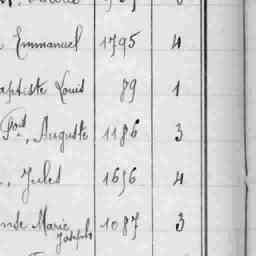 Emmanuel 1795 4
aptiste Louis 89 1
Fois, Auguste 1186 3
Jules 1656 4
Marie Joseph 1087 3